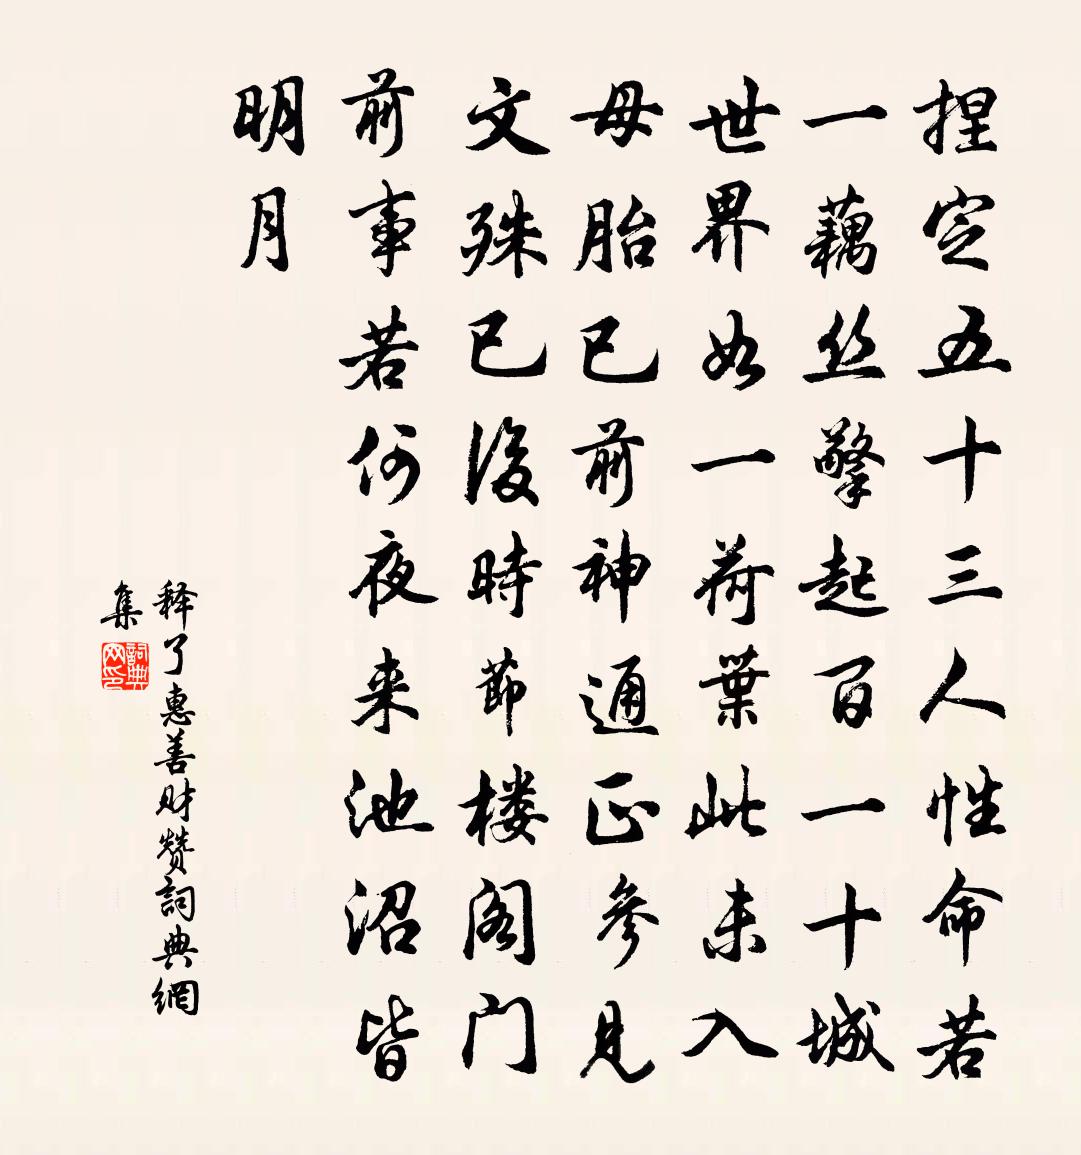 捏定五十三人性命若
一藕丝擎起百一十城
世界如一荷葉此未入
母胎已前神通正參見
文殊已後時節楼阁门
前事若何夜来池沼皆
明月
释了惠善财赞詞典網
集
詞典網印